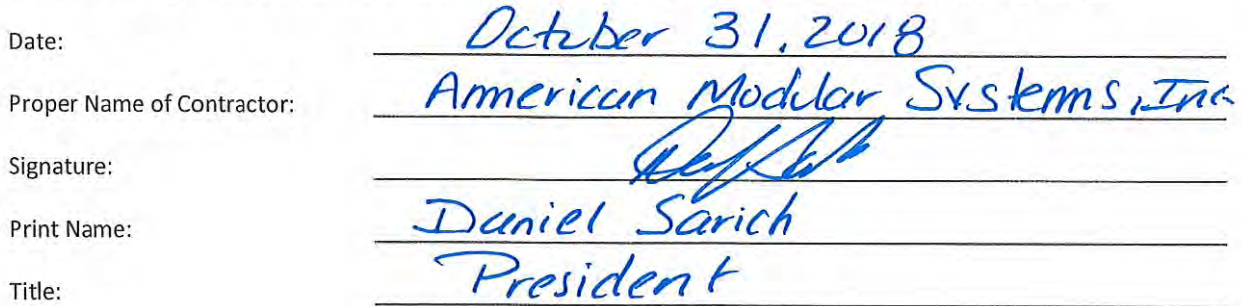 Date: October 31, 2018
Proper Name of Contractor: American Modular Systems, Inc
Signature:
Print Name: Daniel Sarich
Title: President